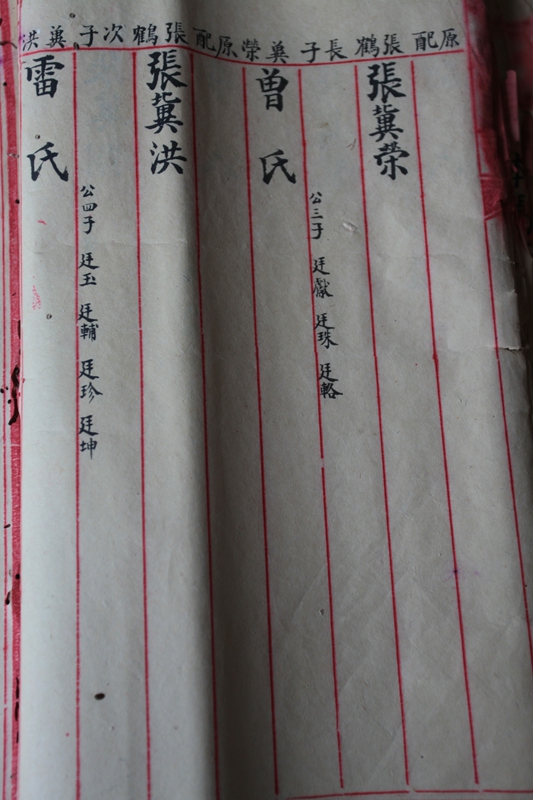 原配張鶴長子冀榮原配張鶴次子冀洪
張冀榮
公三子 廷獻 廷珠 廷輅
曾氏
張冀洪
公四子 廷玉 廷輔 廷珍 廷坤
雷氏